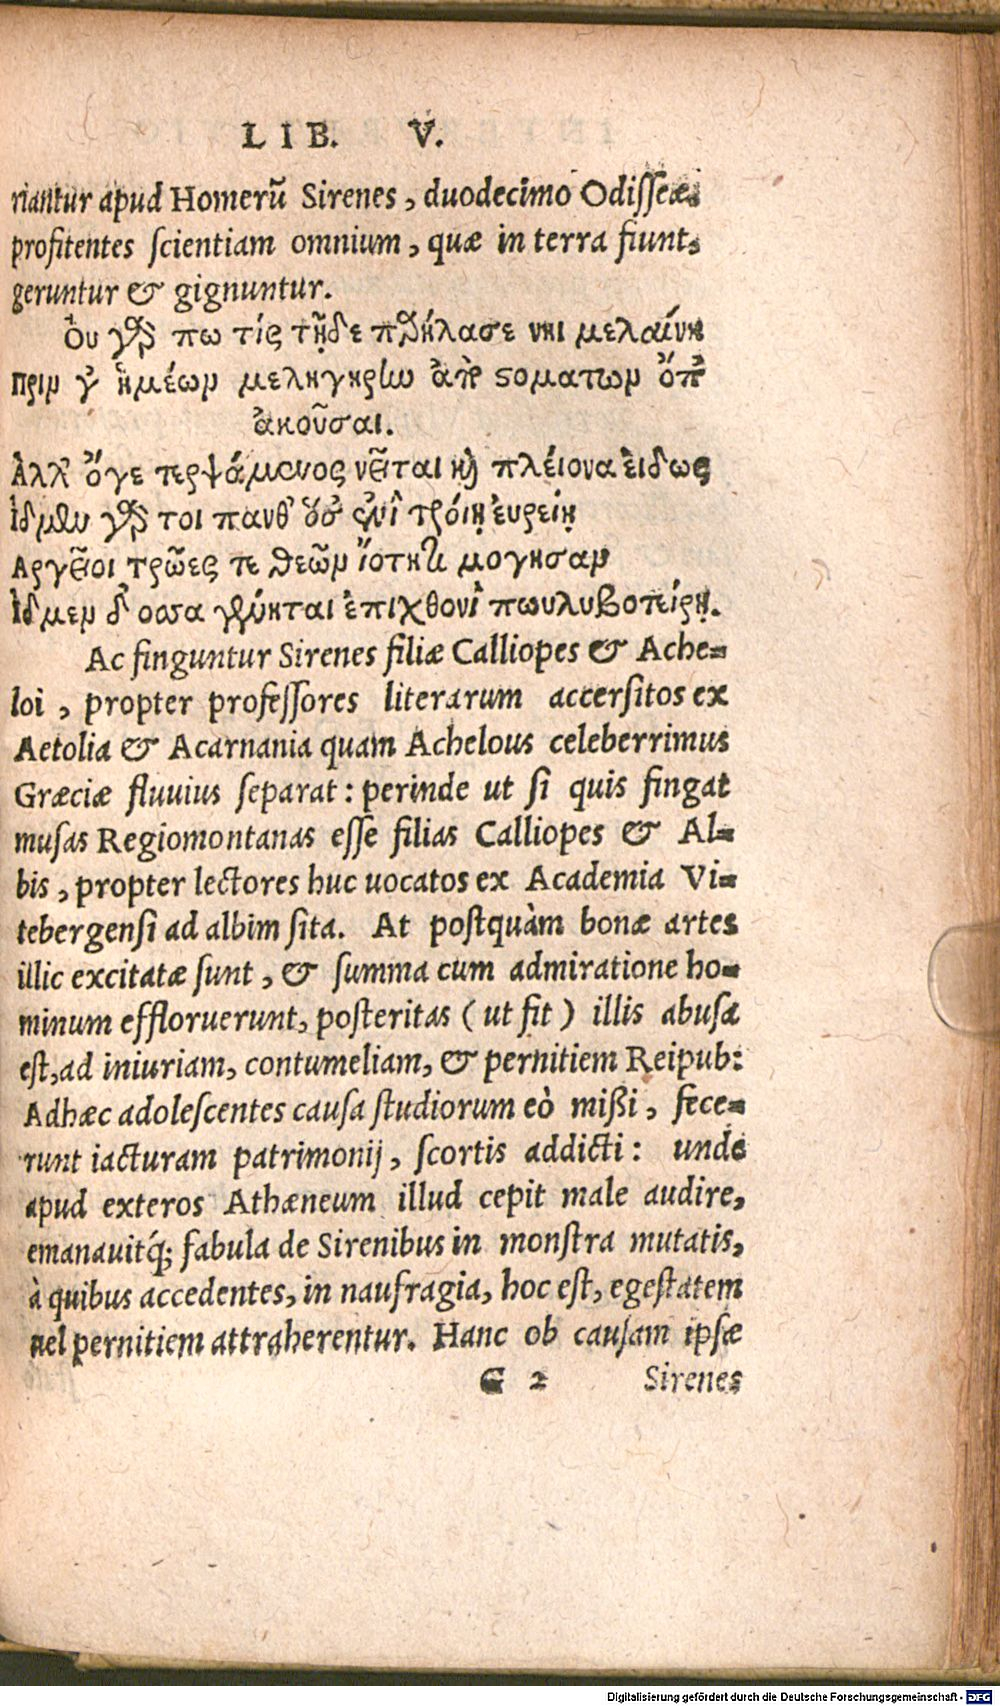 LIB. V.
riantur apud Homerũ Sirenes, duodecimo Odisſeæ.
profitentes ſcientiam omnium, quæ in terra fiunt,
geruntur & gignuntur.
Ὀυ γάρ πω τίς τῇδε παρήλασε νηι μελαίνη
πριν γ' ἡμέων μελιγηριω ἀπ στοματων ὄπ'
ἀκοῦσαι.
Ἀλλ' ὅγε τερψάμενος νεῖται καὶ πλέιονα ἐιδως
Ἰδμεν γάρ τοι πανθ' ὅσ' ἐνὶ τρόιῃ ἐυρείῃ
Αργεῖοι τρῶες τε θεῶν ἰότητι μογησαν
Ἰδμεν δ' οσσα γένηται ἐπιχθονὶ πωυλυβοτείρῃ.
Ac finguntur Sirenes filiæ Calliopes & Ache=
loi, propter profeſſores literarum accerſitos ex
Aetolia & Acarnania quam Achelous celeberrimus
Græciæ fluuius ſeparat: perinde ut ſi quis fingat
muſas Regiomontanas eſſe filias Calliopes & Al=
bis, propter lectores huc uocatos ex Academia Vi=
tebergenſi ad albim ſita. At poſtquàm bonæ artes
illic excitatæ ſunt, & ſumma cum admiratione ho=
minum effloruerunt, poſteritas (ut fit) illis abuſa
eſt, ad iniuriam, contumeliam, & pernitiem Reipub:
Adhæc adoleſcentes cauſa ſtudiorum eò miſſi, fece=
runt iacturam patrimonij, ſcortis addicti: unde
apud exteros Athæneum illud cepit male audire,
emanauitq́; fabula de Sirenibus in monſtra mutatis,
à quibus accedentes, in naufragia, hoc eſt, egeſtatem
uel pernitiem attraherentur. Hanc ob cauſam ipſæ
G 2 Sirenes
Digitalisierung gefördert durch die Deutsche Forschungsgemeinschaft - DFG